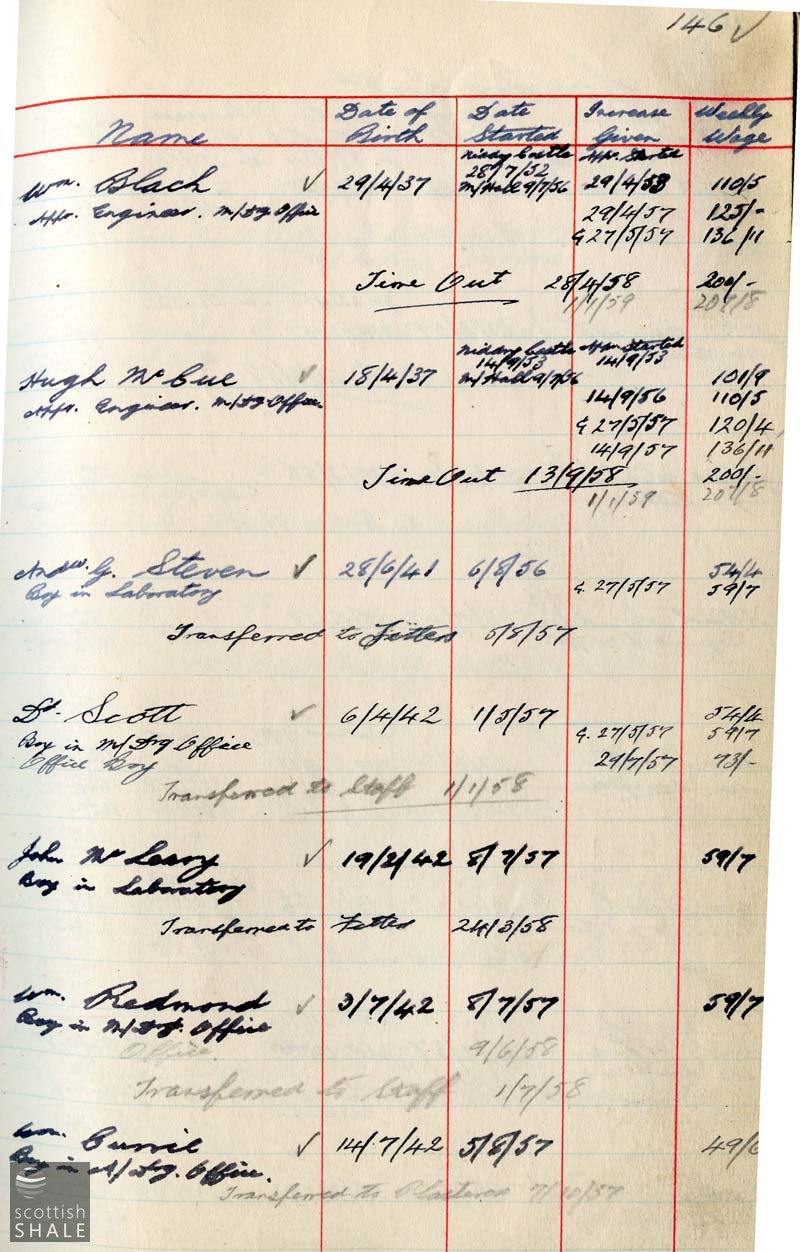 146 ✓
Name Date of Birth Date Started Increase Given Weekly Wage
Niddry Castle Appr. Started
28/7/52
Wm. Black ✓ 29/4/37 M/Hall 9/7/56 29/4/53 110/5
Appr. Engineer. M/Drg Office 29/4/57 125/-
G 27/5/57 136/11
Time Out 28/4/58 200/-
1/1/59 207/8
Niddry Castle Appr. Started
14/9/53 14/9/53
Hugh McCue ✓ 18/4/37 M/Hall 9/7/56 101/9
Appr. Engineer. M/Drg Office. 14/9/56 110/5
G 27/5/57 120/4
14/9/57 136/11
Time Out 13/9/58 200/-
1/1/59 207/8
Andw. G. Steven ✓ 28/6/41 6/8/56 54/4
Boy in Laboratory G. 27/5/57 59/7
Transferred to Fitters 5/8/57
Dd. Scott ✓ 6/4/42 1/5/57 54/4
Boy in M/Drg Office G. 27/5/57 59/7
Office Boy 29/7/57 73/-
Transferred to Staff 1/1/58
John McLeary ✓ 19/2/42 8/7/57 59/7
Boy in Laboratory
Transferred to Fitter 24/3/58
Wm. Redmond ✓ 3/7/42 8/7/57 59/7
Boy in M/Drg. Office
Office. 9/6/58
Transferred to Staff 1/7/58
Wm. Currie ✓ 14/7/42 5/8/57 49/6
Boy in A/Drg. Office.
Transferred to Plasterers 7/10/57
scottish
SHALE